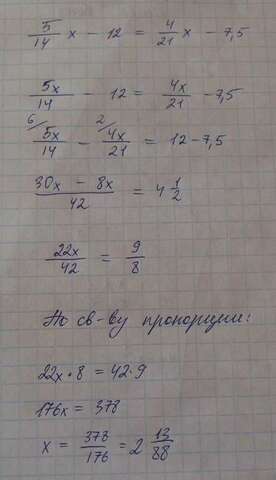 5/14 x - 12 = 4/21 x - 7,5
5x/14 - 12 = 4x/21 - 7,5
6/ 5x/14 - 2/ 4x/21 = 12 - 7,5
30x - 8x/42 = 4 1/2
22x/42 = 9/8
По св-ву пропорции:
22x • 8 = 42 • 9
176x = 378
x = 378/176 = 2 13/88